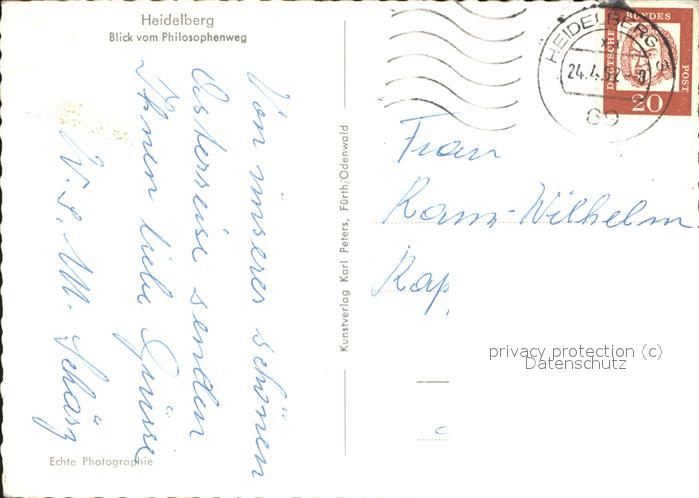 Heidelberg
Blick vom Philosophenweg
Von unserer schönen
Osterreise senden
Ihnen liebe Grüsse
W. u. M. Schärz
Echte Photographie
Kunstverlag Karl Peters, Fürth/Odenwald
HEIDELBERG
24.4.62
89
DEUTSCHE BUNDESPOST
20
Frau
Kanz-Wilhelm
Kap
privacy protection (c)
Datenschutz